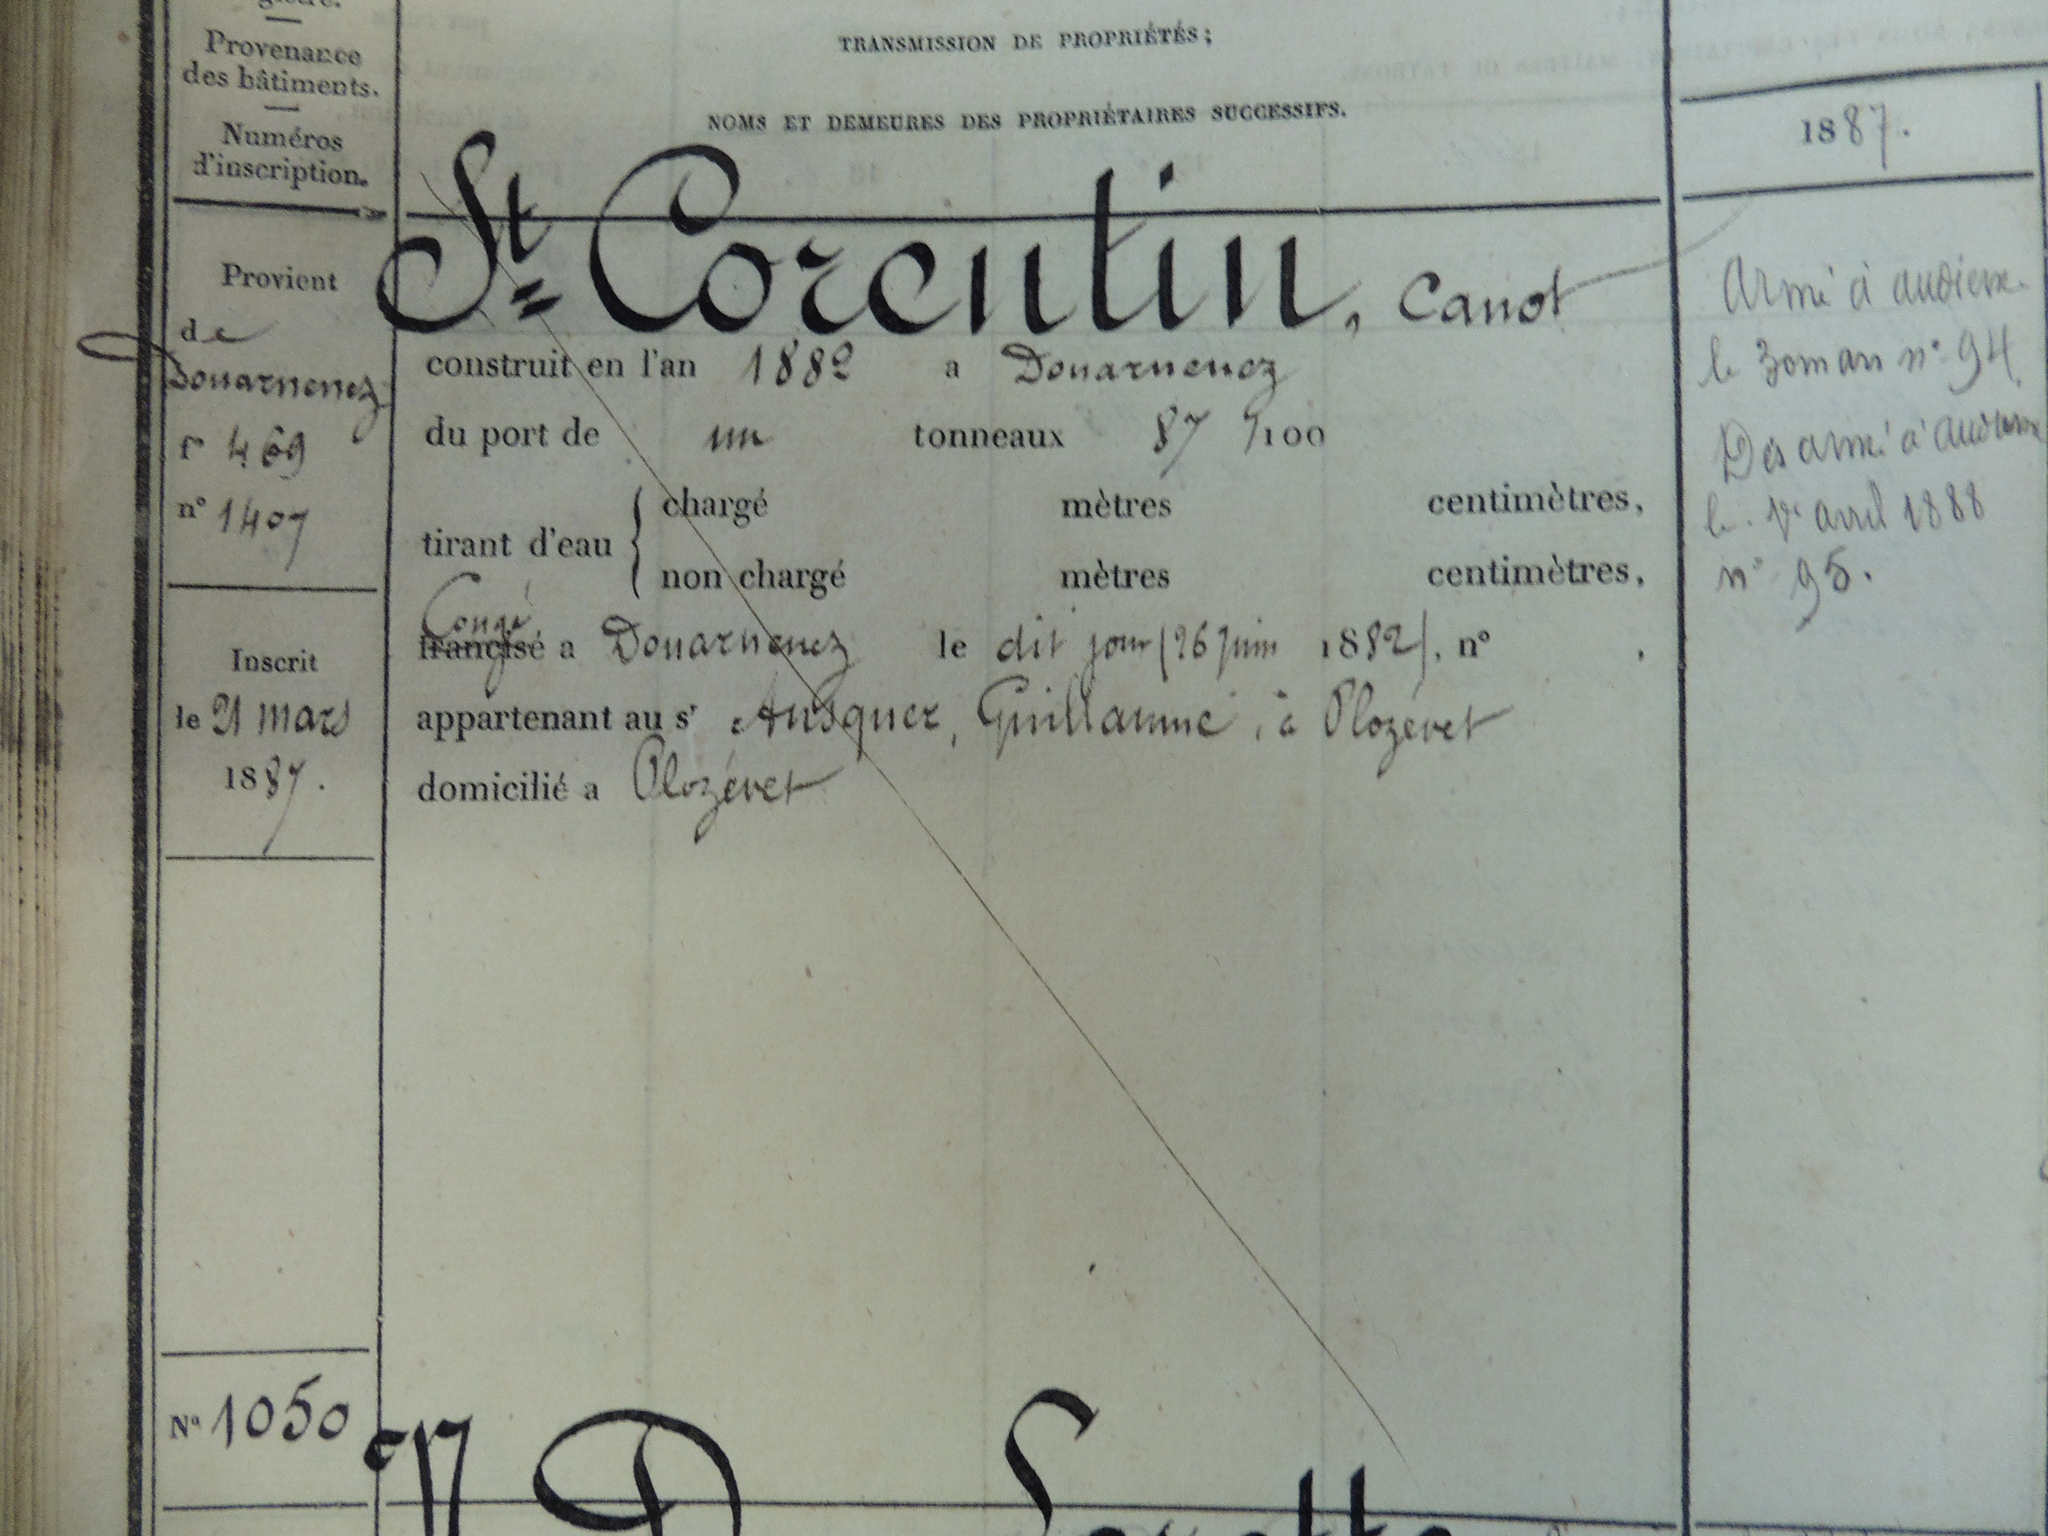 gistre.
Provenance
des bâtiments.
Numéros
d'inscription.
TRANSMISSION DE PROPRIÉTÉS;
NOMS ET DEMEURES DES PROPRIÉTAIRES SUCCESSIFS.
1887.
Provient
de
Douarnenez
fº 469
nº 1407
Inscrit
le 21 mars
1887.
St Corentin, Canot
construit en l'an 1882 a Douarnenez
du port de un tonneaux 87 /100
tirant d'eau { chargé mètres centimètres,
non chargé mètres centimètres,
Congé
francisé a Douarnenez le dit jour (26 Juin 1882), nº ,
appartenant au sr Ansquer, Guillaume, à Plozévet
domicilié a Plozévet
Armé à audierne
le 30 mars nº 94
Desarmé à audierne
le 1er avril 1888
nº 95.
Nº 1050
N. D.